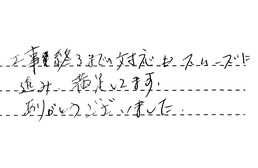 工事終るまでの対応もスムーズに
進み、満足してます。
ありがとうございました。